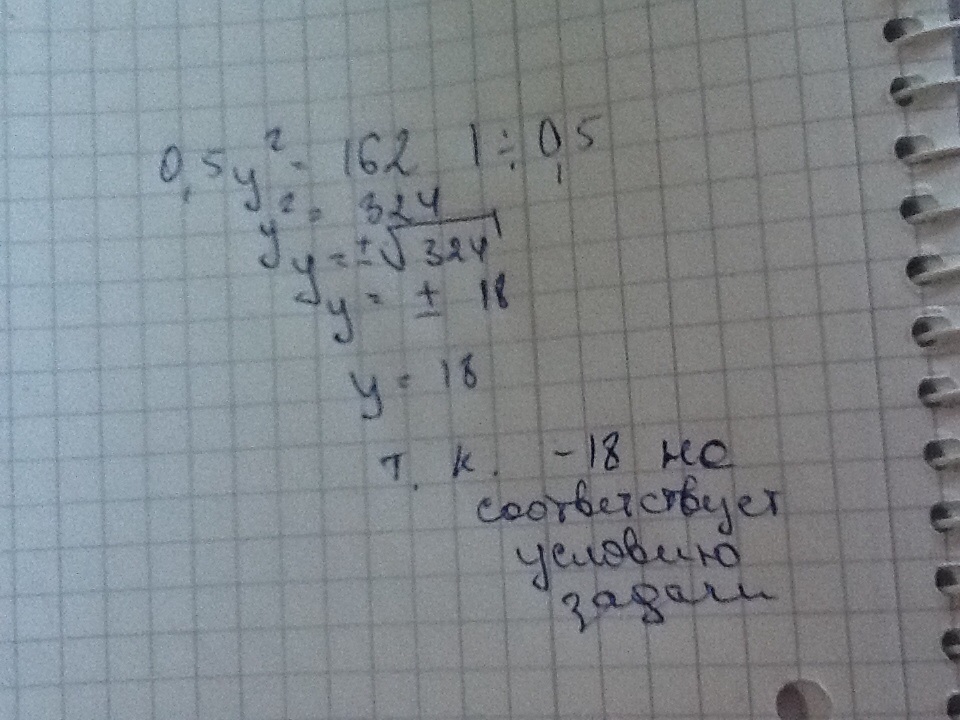 0,5y² = 162 | ÷ 0,5
y² = 324
y = ±√324
y = ± 18
y = 18
т. к. -18 не
соответствует
условию
задачи